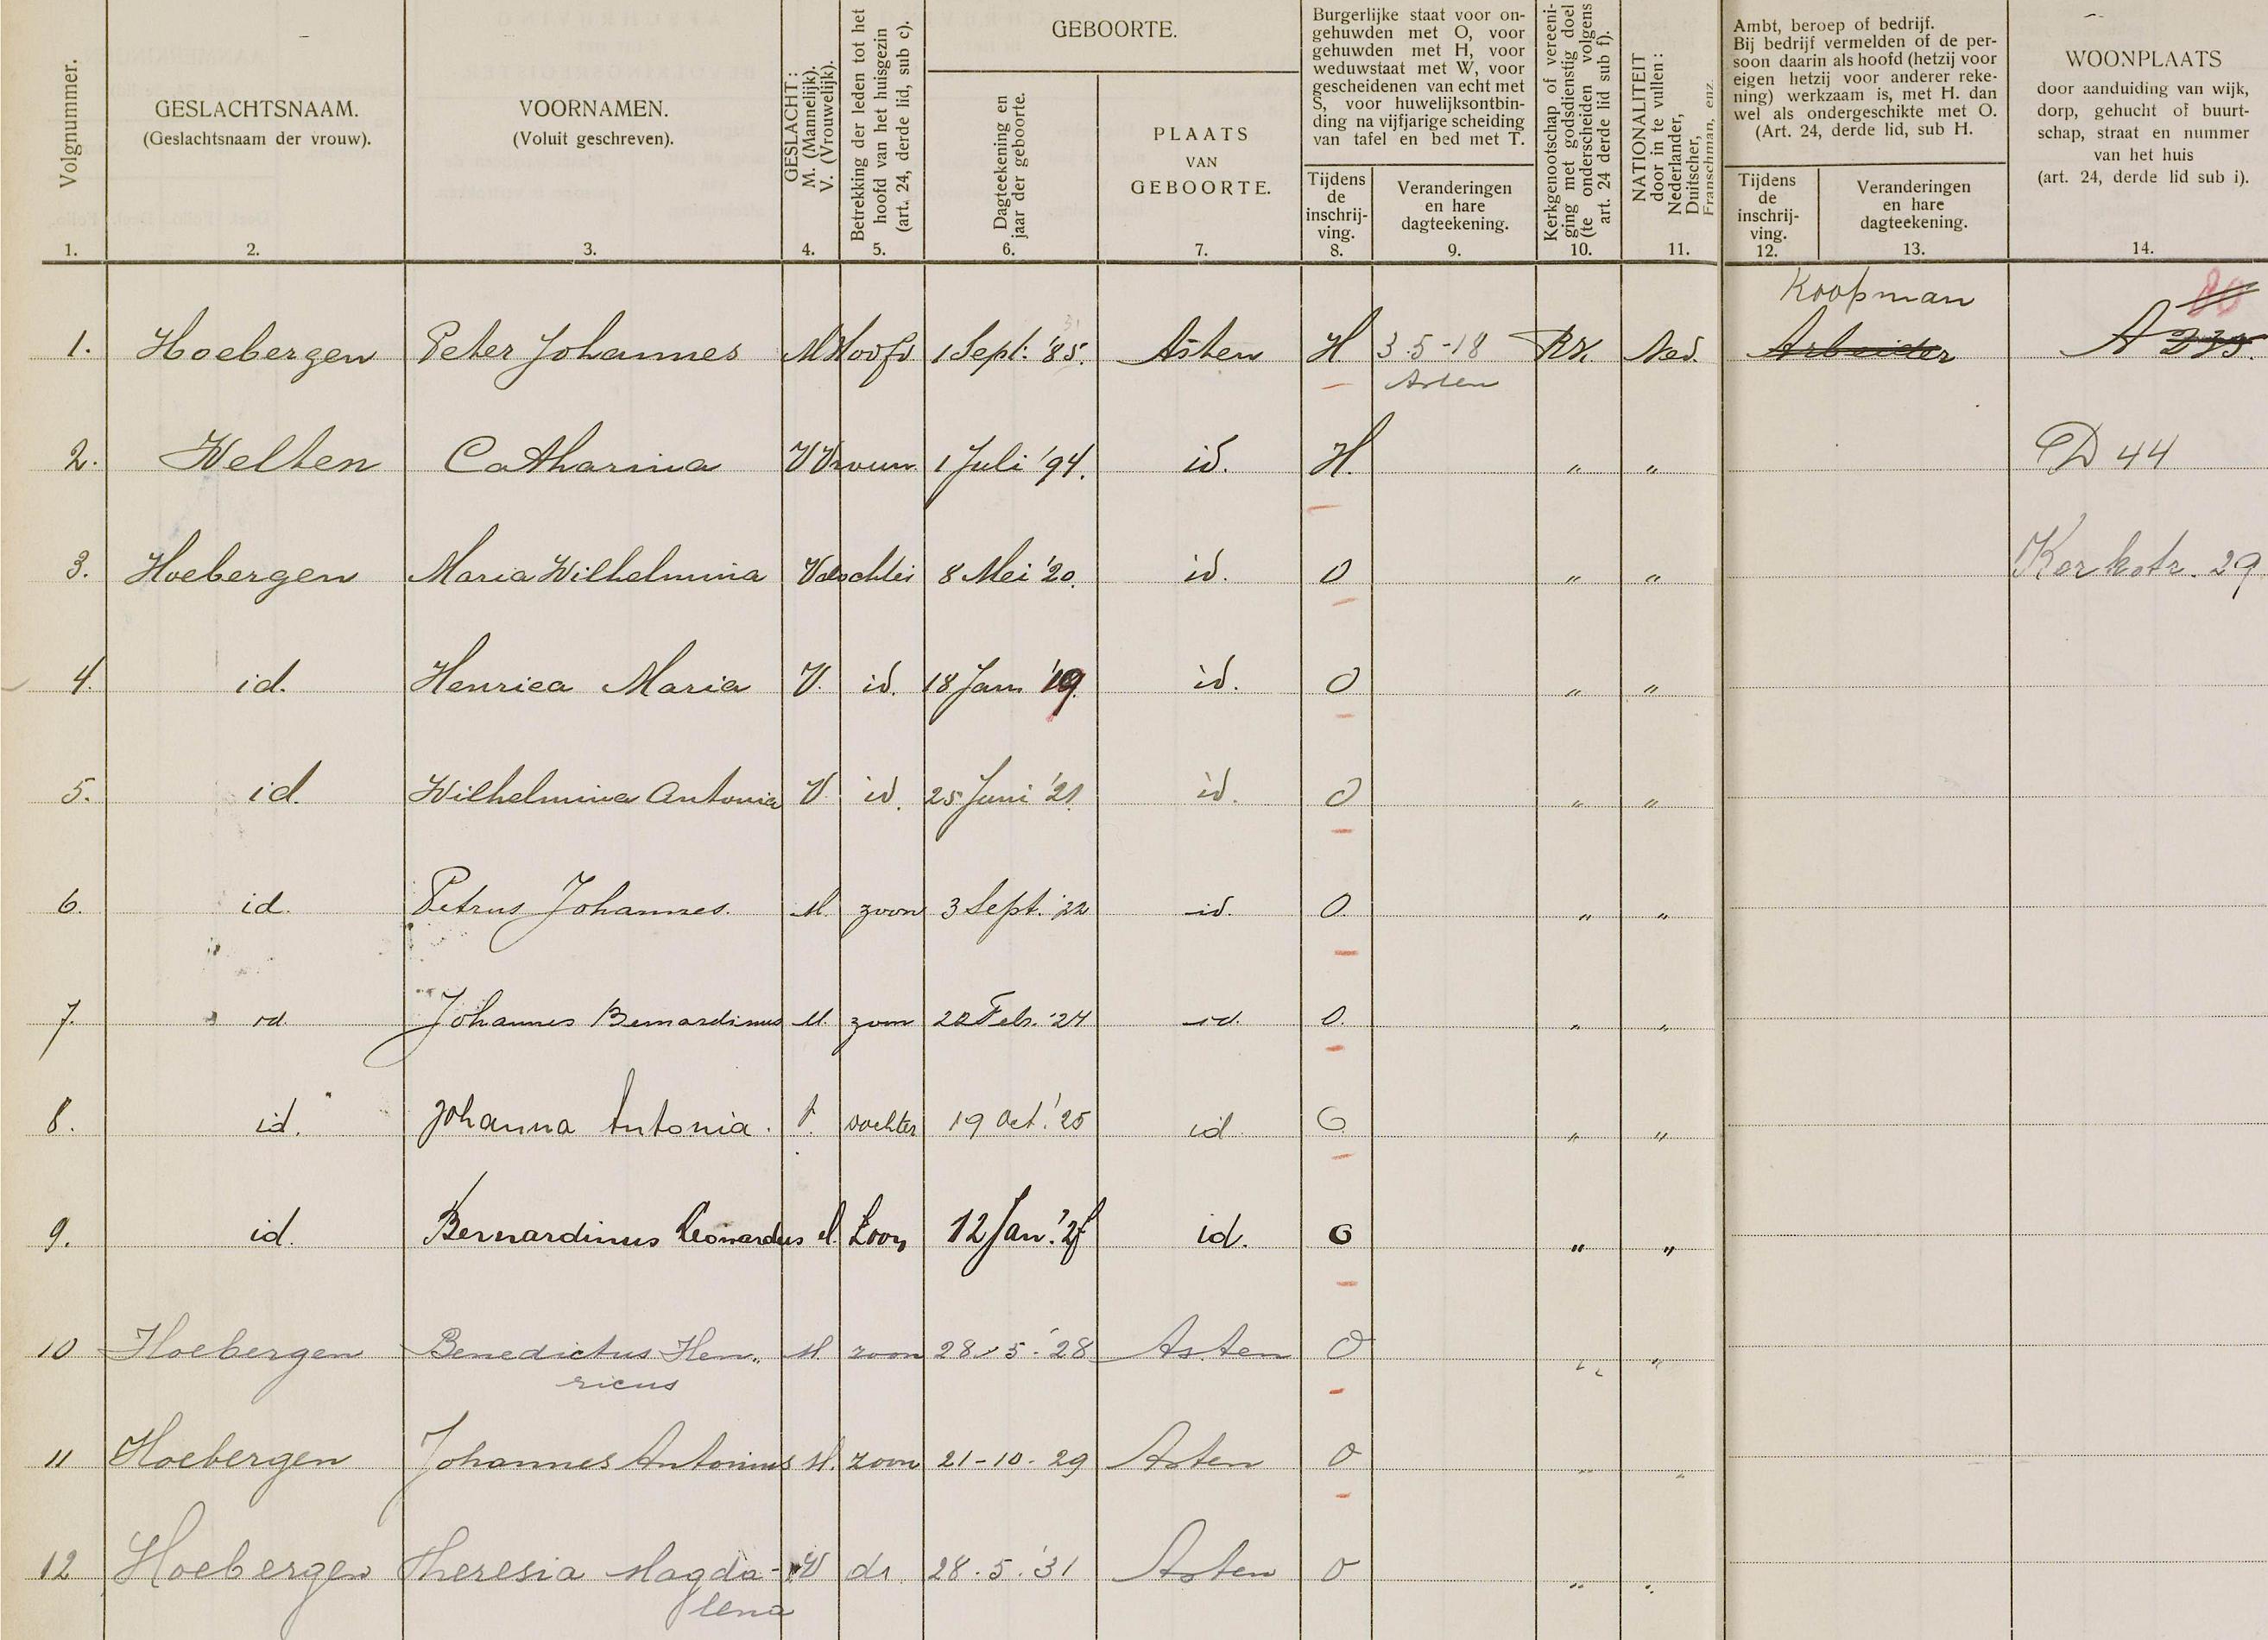 Volgnummer.
1.
GESLACHTSNAAM.
(Geslachtsnaam der vrouw).
2.
VOORNAMEN.
(Voluit geschreven).
3.
GESLACHT:
M. (Mannelijk).
V. (Vrouwelijk).
4.
Betrekking der leden tot het
hoofd van het huisgezin
(art. 24, derde lid, sub c).
5.
GEBOORTE.
Dagteekening en
jaar der geboorte.
6.
PLAATS
VAN
GEBOORTE.
7.
Burgerlijke staat voor on-
gehuwden met O, voor
gehuwden met H, voor
weduwstaat met W, voor
gescheidenen van echt met
S, voor huwelijksontbin-
ding na vijfjarige scheiding
van tafel en bed met T.
Tijdens
de
inschrij-
ving.
8.
Veranderingen
en hare
dagteekening.
9.
Kerkgenootschap of vereeni-
ging met godsdienstig doel
(te onderscheiden volgens
art. 24 derde lid sub f).
10.
NATIONALITEIT
door in te vullen:
Nederlander,
Duitscher,
Franschman, enz.
11.
Ambt, beroep of bedrijf.
Bij bedrijf vermelden of de per-
soon daarin als hoofd (hetzij voor
eigen hetzij voor anderer reke-
ning) werkzaam is, met H. dan
wel als ondergeschikte met O.
(Art. 24, derde lid, sub H.
Tijdens
de
inschrij-
ving.
12.
Veranderingen
en hare
dagteekening.
13.
WOONPLAATS
door aanduiding van wijk,
dorp, gehucht of buurt-
schap, straat en nummer
van het huis
(art. 24, derde lid sub i).
14.
Koopman 80
1. Hoebergen Peter Johannes M Hoofd 1 Sept. '85. Asten H 3-5-18 RK. Ned. Arbeider A
Asten
2. Welten Catharina V Vrouw 1 Juli '94. id. H. " " D 44
3. Hoebergen Maria Wilhelmina V dochter 8 Mei '20. id. O " " Kerkstr. 29
4. id. Henrica Maria V. id. 18 Jan '19. id. O " "
5. id. Wilhelmina Antonia V id. 25 Juni '21. id. O " "
6. id. Petrus Johannes. M. zoon 3 Sept. '22 id. O. " "
7. id. Johannes Bernardinus M. zoon 22 Febr. '24 id. O. " "
8. id. Johanna Antonia. V. dochter 19 Oct. '25 id O. " "
9. id. Bernardinus Leonardus M. Zoon 12 Jan. '27 id. O " "
10 Hoebergen Benedictus Hen„ M. zoon 28-5-'28 Asten O " "
ricus
11 Hoebergen Johannes Antonius M. zoon 21-10-29 Asten O " "
12 Hoebergen Theresia Magda- V dr 28.5.'31 Asten O " "
lena